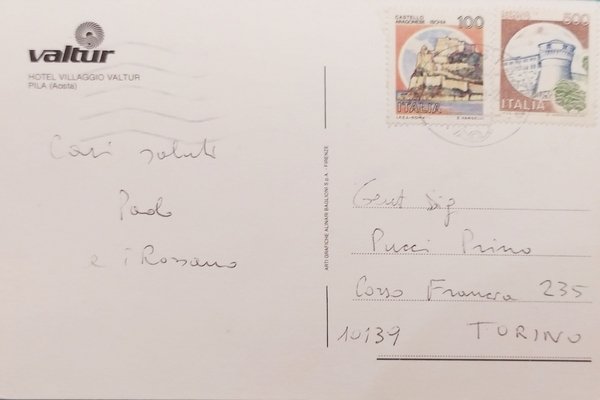 valtur
HOTEL VILLAGGIO VALTUR
PILA (Aosta)
CASTELLO
ARAGONESE ISCHIA
100
500
ITALIA
ITALIA
Cari saluti
Paolo
e i Rossano
ARTI GRAFICHE ALINARI BAGLIONI S.p.A. - FIRENZE
Gent Sig
Pucci Primo
Corso Francia 235
10139 TORINO